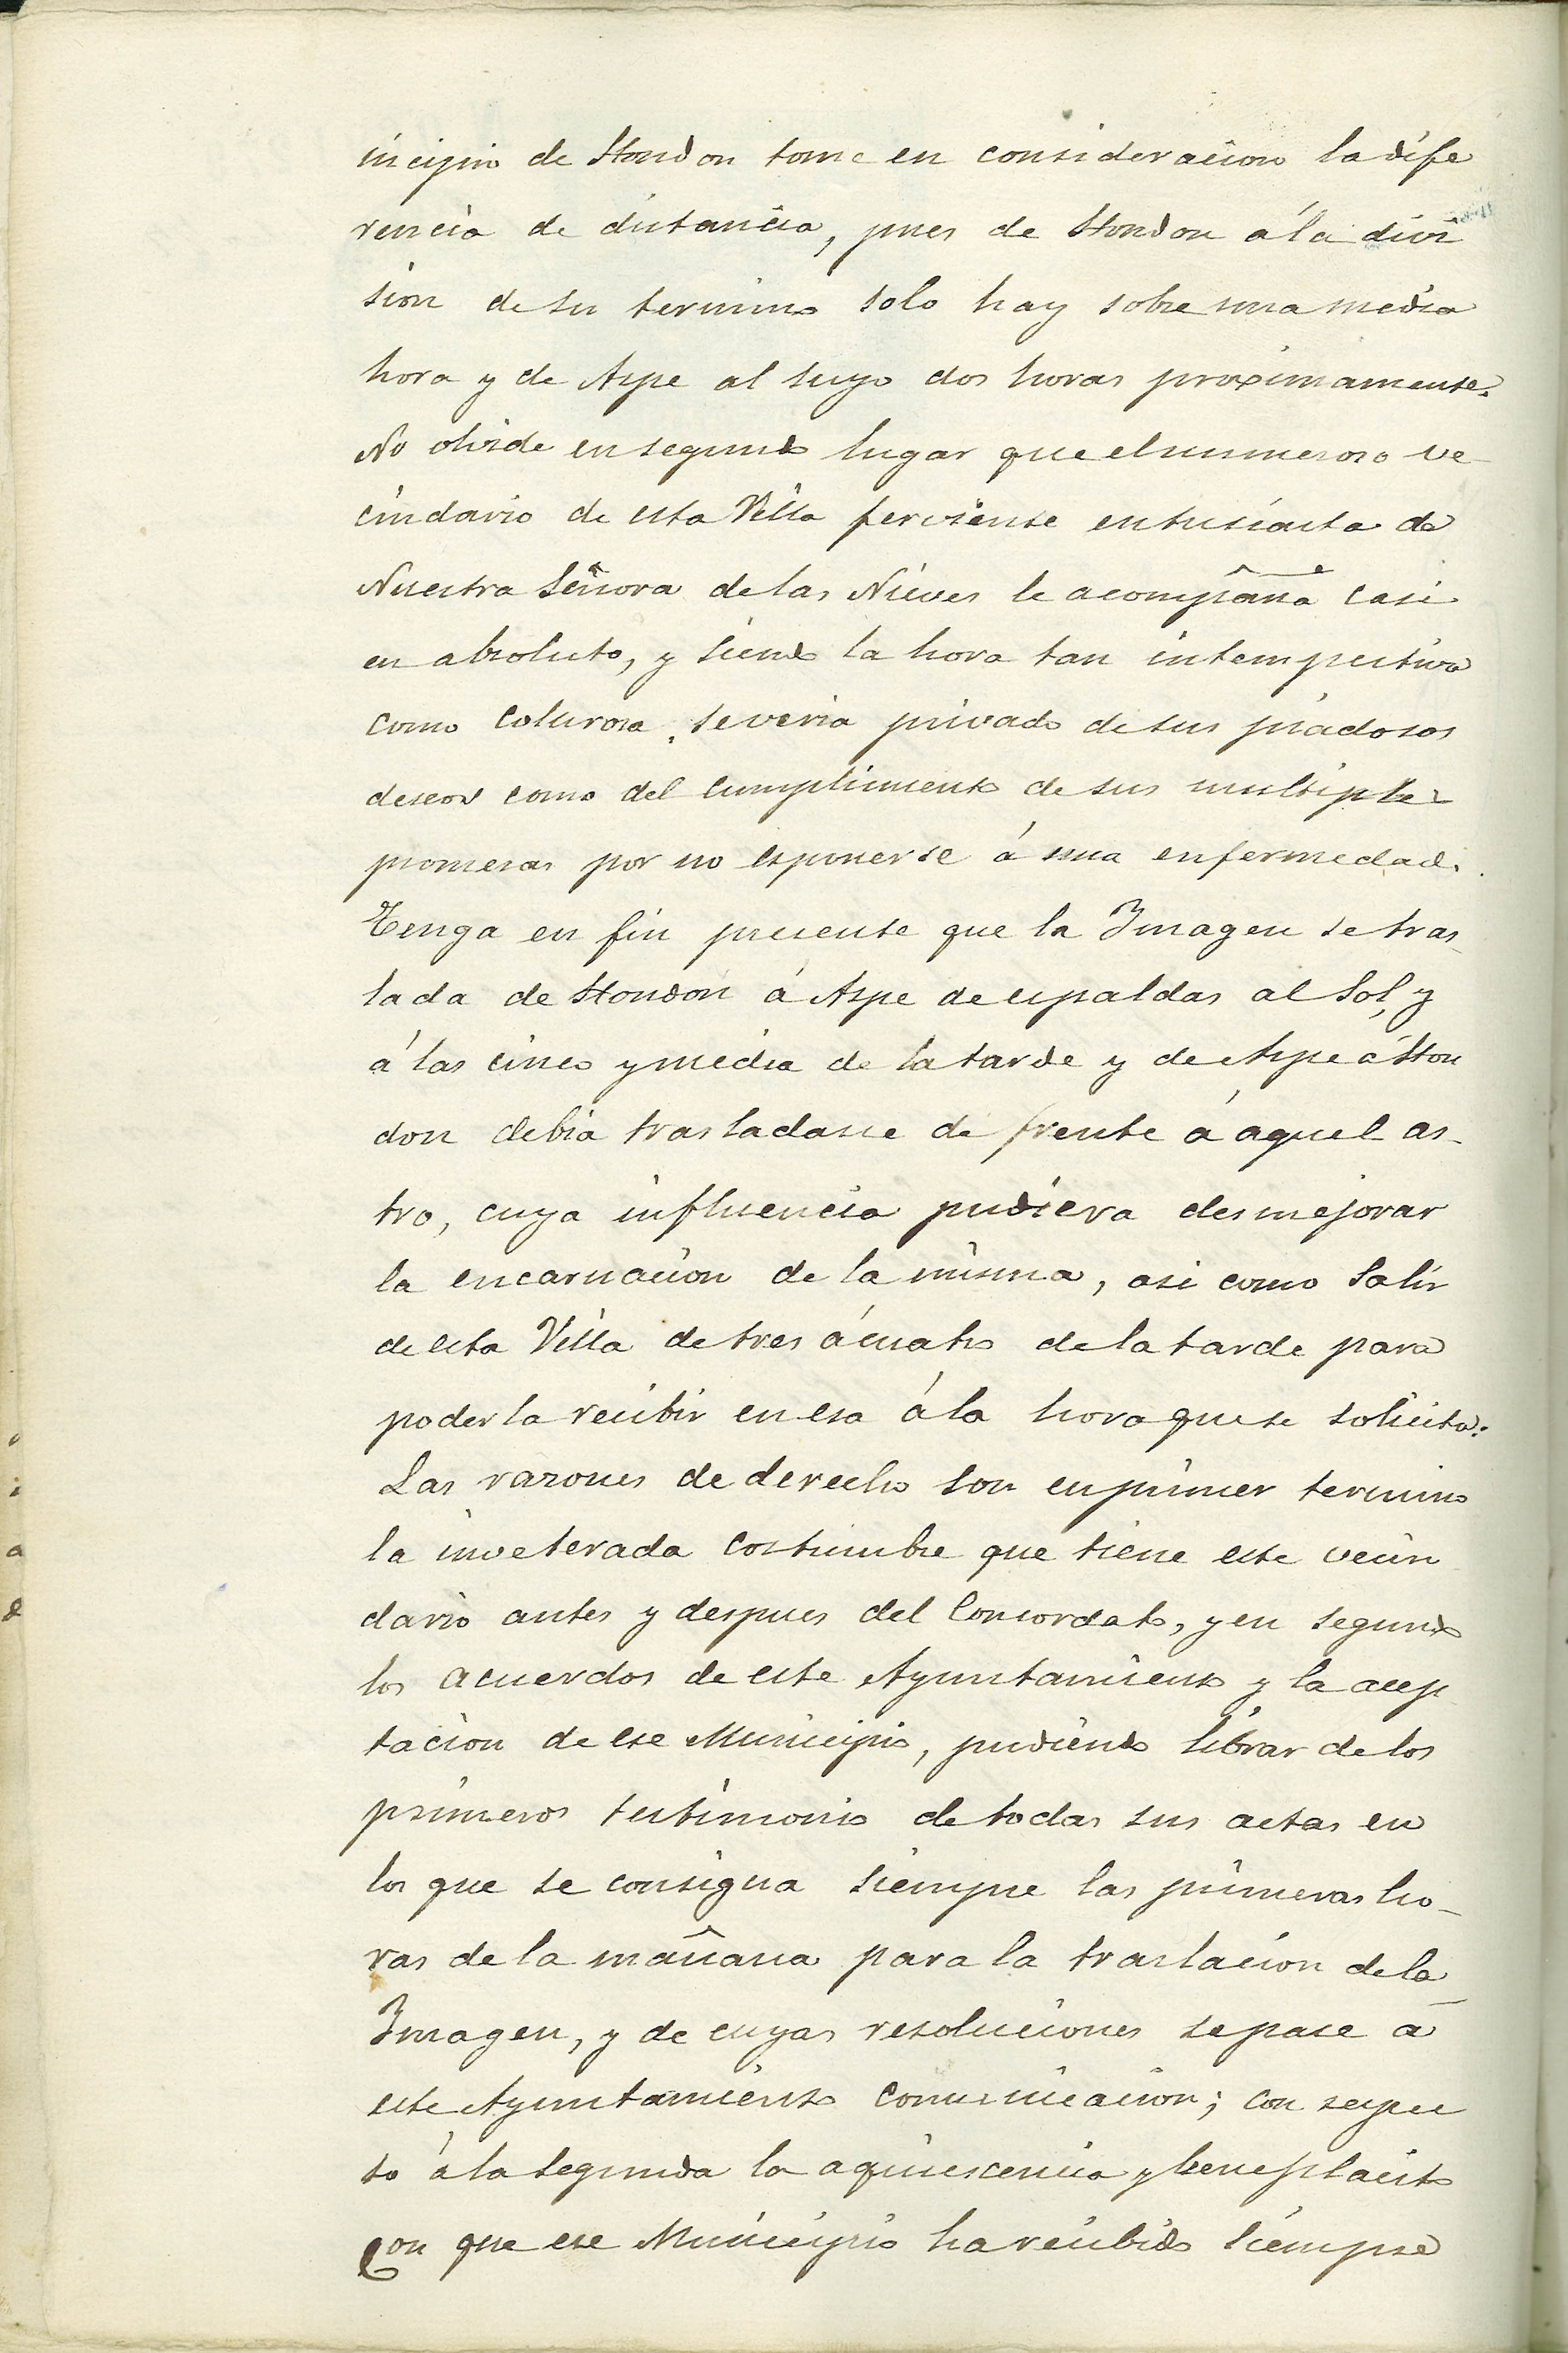 nicipio de Hondon tome en consideracion la dife
rencia de distancia, pues de Hondon á la divi
sion de su termino solo hay sobre una media
hora y de Aspe al suyo dos horas proximamente.
No olvide en segundo lugar que el numeroso ve
cindario de esta Villa ferviente entusiasta de
Nuestra Señora de las Nieves le acompaña casi
en absoluto, y siendo la hora tan intempestiva
como calurosa, se veria privado de sus piadosos
deseos como del cumplimiento de sus multiples
promesas por no esponerse á una enfermedad.
Tenga en fin presente que la Imagen se tras-
lada de Hondon á Aspe de espaldas al Sol, y
á las cinco y media de la tarde y de Aspe á Hon
don debia trasladarse de frente á aquel as-
tro, cuya influencia pudiera desmejorar
la encarnacion de la misma, asi como salir
de esta Villa de tres á cuatro de la tarde para
poderla recibir en esa á la hora que se solicita.
Las razones de derecho son en primer termino
la inveterada costumbre que tiene este vecin
dario antes y despues del Concordato, y en segundo
los acuerdos de este Ayuntamiento y la acep
tacion de ese Municipio, pudiendo librar de los
primeros testimonio de todas sus actas en
los que se consigna siempre las primeras ho-
ras de la mañana para la traslacion de la
Imagen, y de cuyas resoluciones se pase á
este Ayuntamiento comunicacion; con respec
to á la segunda la aquiescencia y beneplacito
con que ese Municipio ha recibido siempre